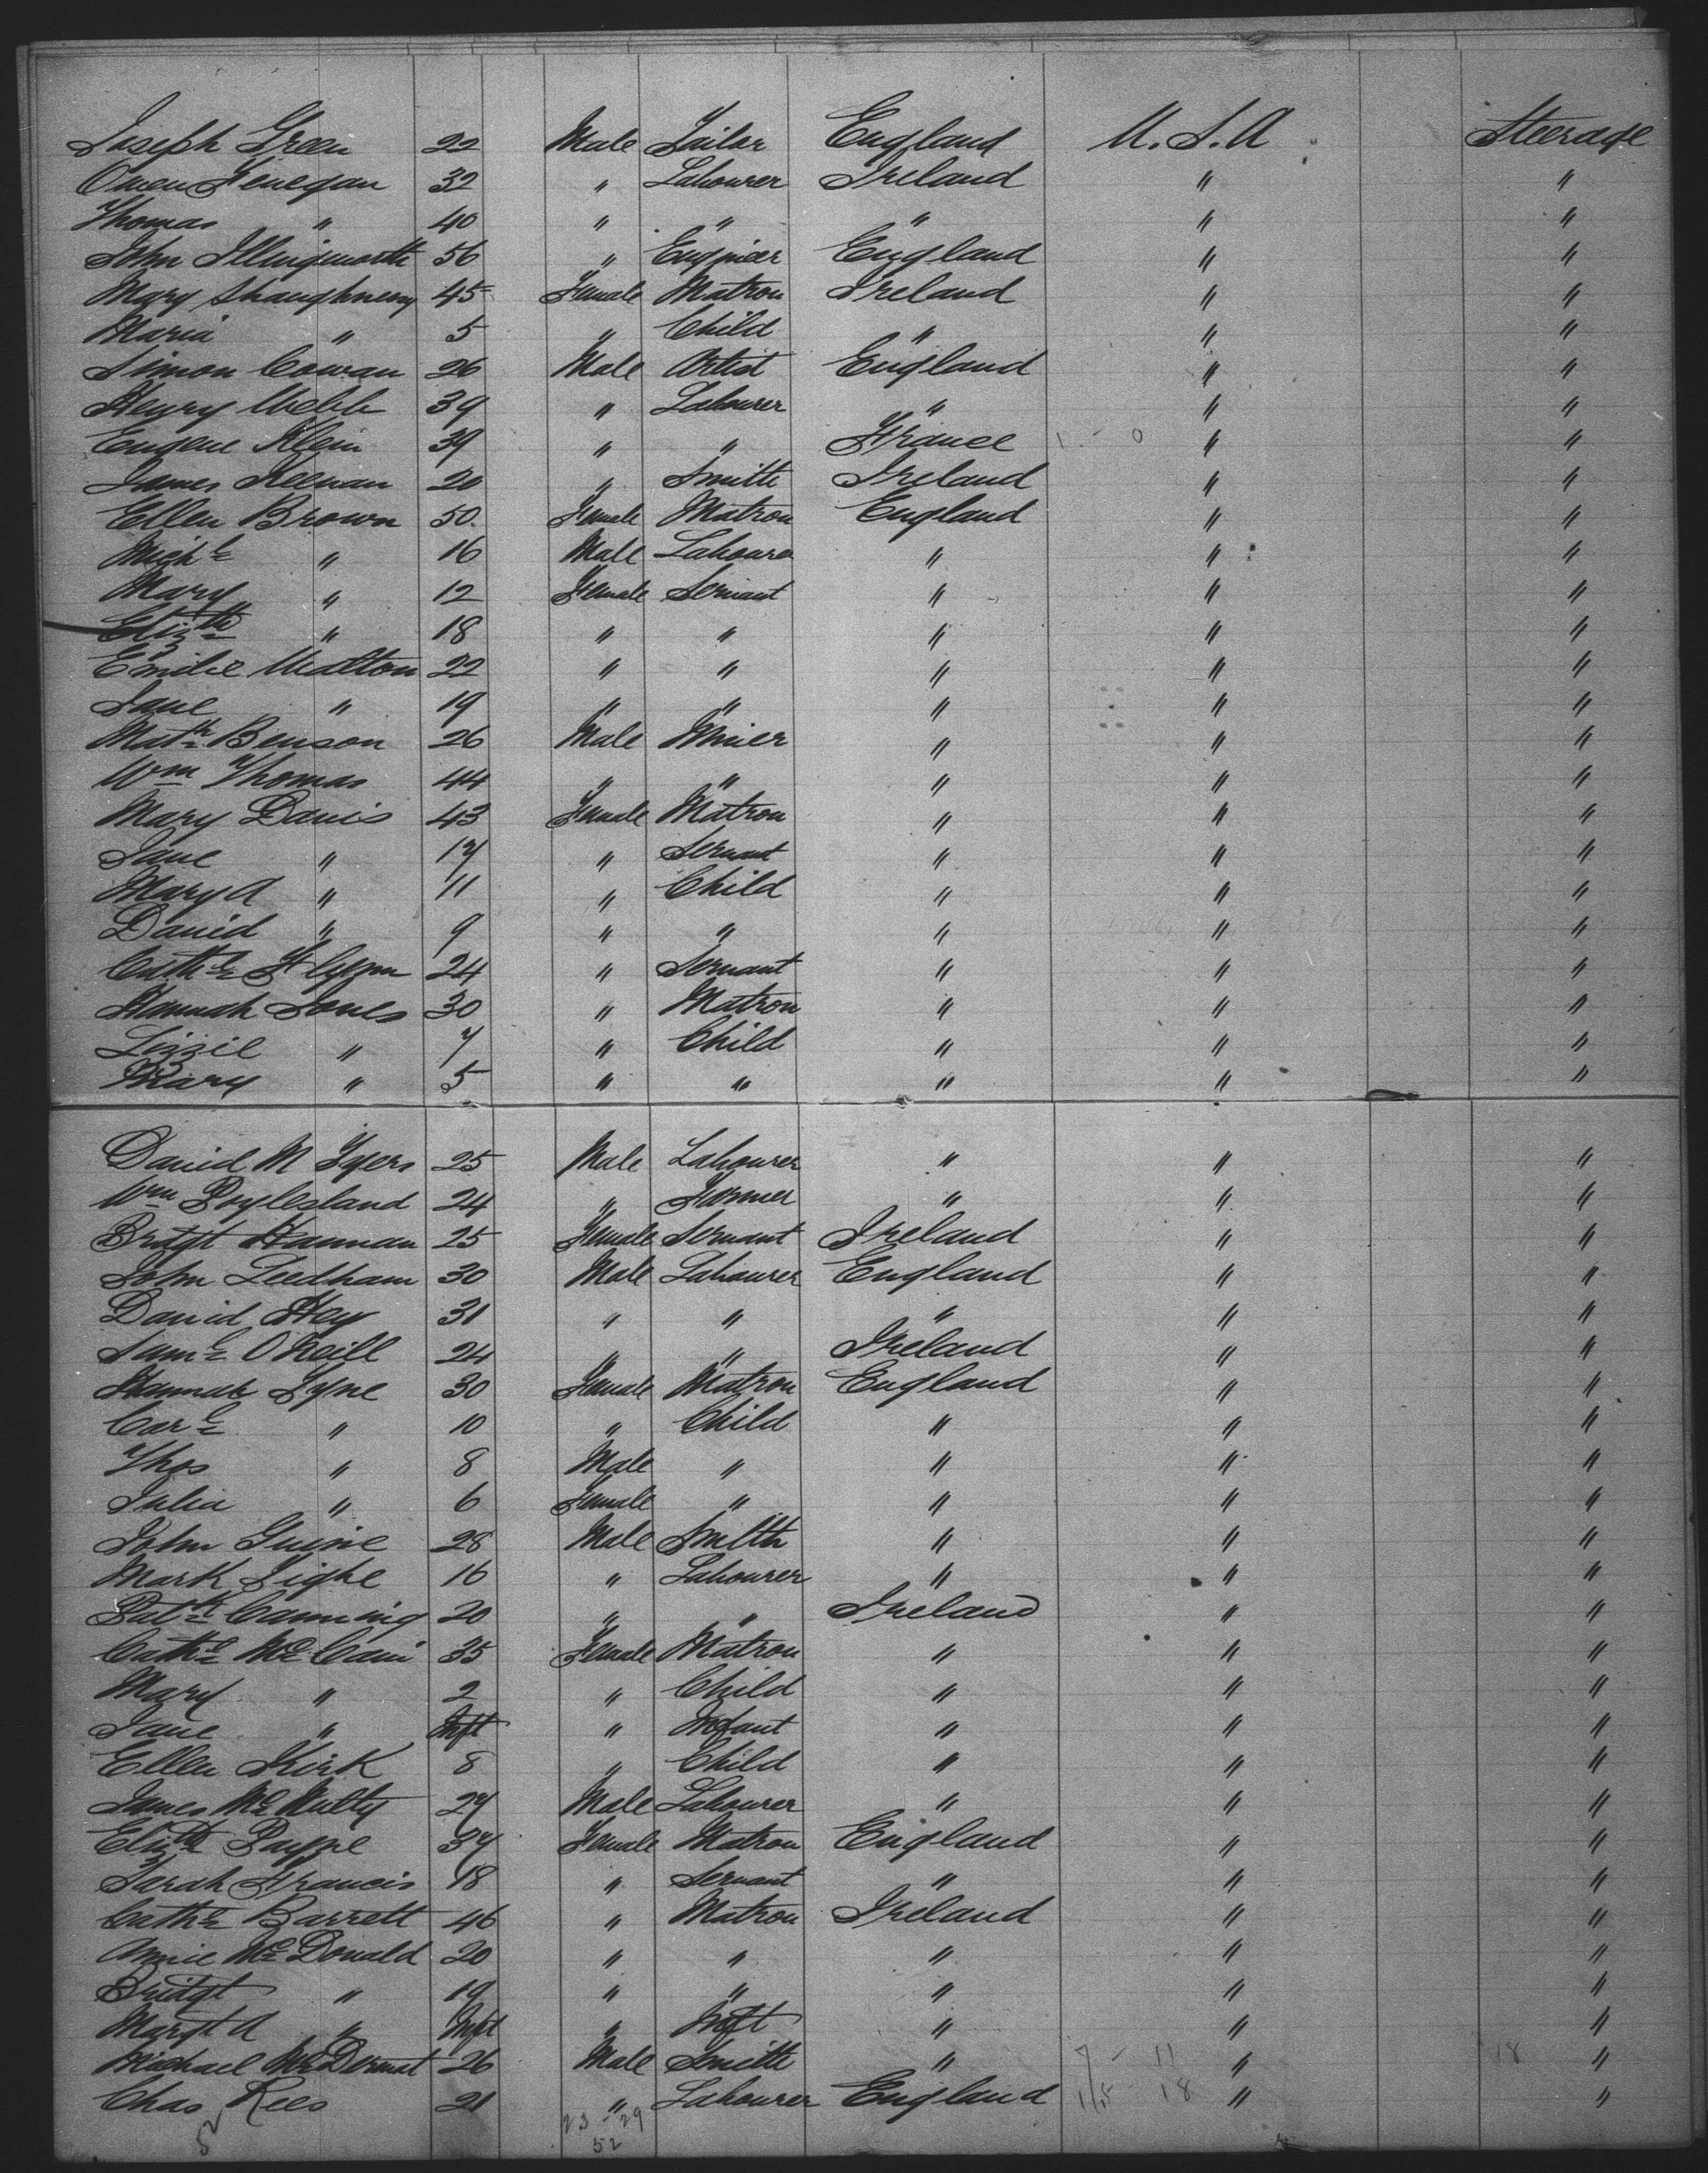 Joseph Green 22 Male Tailor England U.S.A Steerage
Owen Fenegan 32 " Labourer Ireland " "
Thomas " 40 " " " " "
John Illingworth 56 " Engineer England " "
Mary Shaughnessy 45 Female Matron Ireland " "
Maria " 5 " Child " " "
Simon Cowan 26 Male Artist England " "
Henry Webb 39 " Labourer " " "
Eugene Klein 39 " " France " "
James Keenan 20 " Smith Ireland " "
Ellen Brown 50 Female Matron England " "
Michl " 16 Male Labourer " " "
Mary " 12 Female Servant " " "
Elizth " 18 " " " " "
Emilie Walton 22 " " " " "
Jane " 19 " " " " "
Matth Benson 26 Male Miner " " "
Wm Thomas 44 " " " " "
Mary Davis 43 Female Matron " " "
Jane " 17 " Servant " " "
Mary A " 11 " Child " " "
David " 9 " " " " "
Cathe Flynn 24 " Servant " " "
Hannah Jones 30 " Matron " " "
Lizzie " 7 " Child " " "
Mary " 5 " " " " "
David M Tyers 25 Male Labourer " " "
Wm 24 " Farmer " " "
Bridgt Hannan 25 Female Servant Ireland " "
John Leedham 30 Male Labourer England " "
David Hey 31 " " " " "
Saml O'Neill 24 " " Ireland " "
Hannah Lyne 30 Female Matron England " "
Care " 10 " Child " " "
Thos " 8 Male " " " "
Julia " 6 Female " " " "
John 28 Male Smith " " "
Mark Tighe 16 " Labourer " " "
Patk Canning 20 " " Ireland " "
Cathe McCann 35 Female Matron " " "
Mary " 2 " Child " " "
Jane " Inft " Infant " " "
Ellen Kirk 8 " Child " " "
James McNulty 27 Male Labourer " " "
Elizth Payne 37 Female Matron England " "
Sarah Francis 18 " Servant " " "
Cathe Barrett 46 " Matron Ireland " "
Annie McDonald 20 " " " " "
Bridgt " 19 " " " " "
Margt A " Inft " Inft " " "
Michael McDermot 26 Male Smith " 7 - 11 " 18 "
Chas Rees 21 " Labourer England 18 " "
52 23 - 29
52